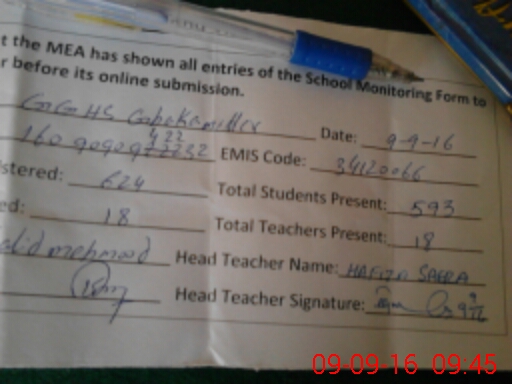 t the MEA has shown all entries of the School Monitoring Form to
r before its online submission.
GGHS Date: 9-9-16
EMIS Code: 34120066
stered: 624 Total Students Present: 593
ed: 18 Total Teachers Present: 18
alid mehmood Head Teacher Name: HAFIZA SAERA
Head Teacher Signature:
09-09-16 09:45